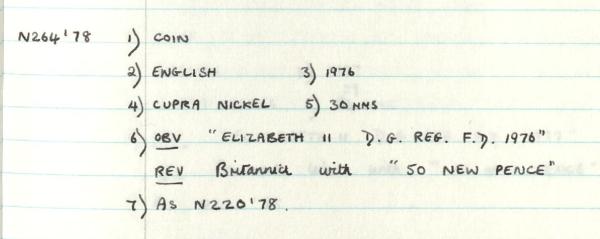 N264'78 1) COIN
2) ENGLISH 3) 1976
4) CUPRA NICKEL 5) 30 MMS
6) OBV "ELIZABETH II D.G. REG. F.D. 1976"
REV Britannia with "50 NEW PENCE"
7) AS N220'78.